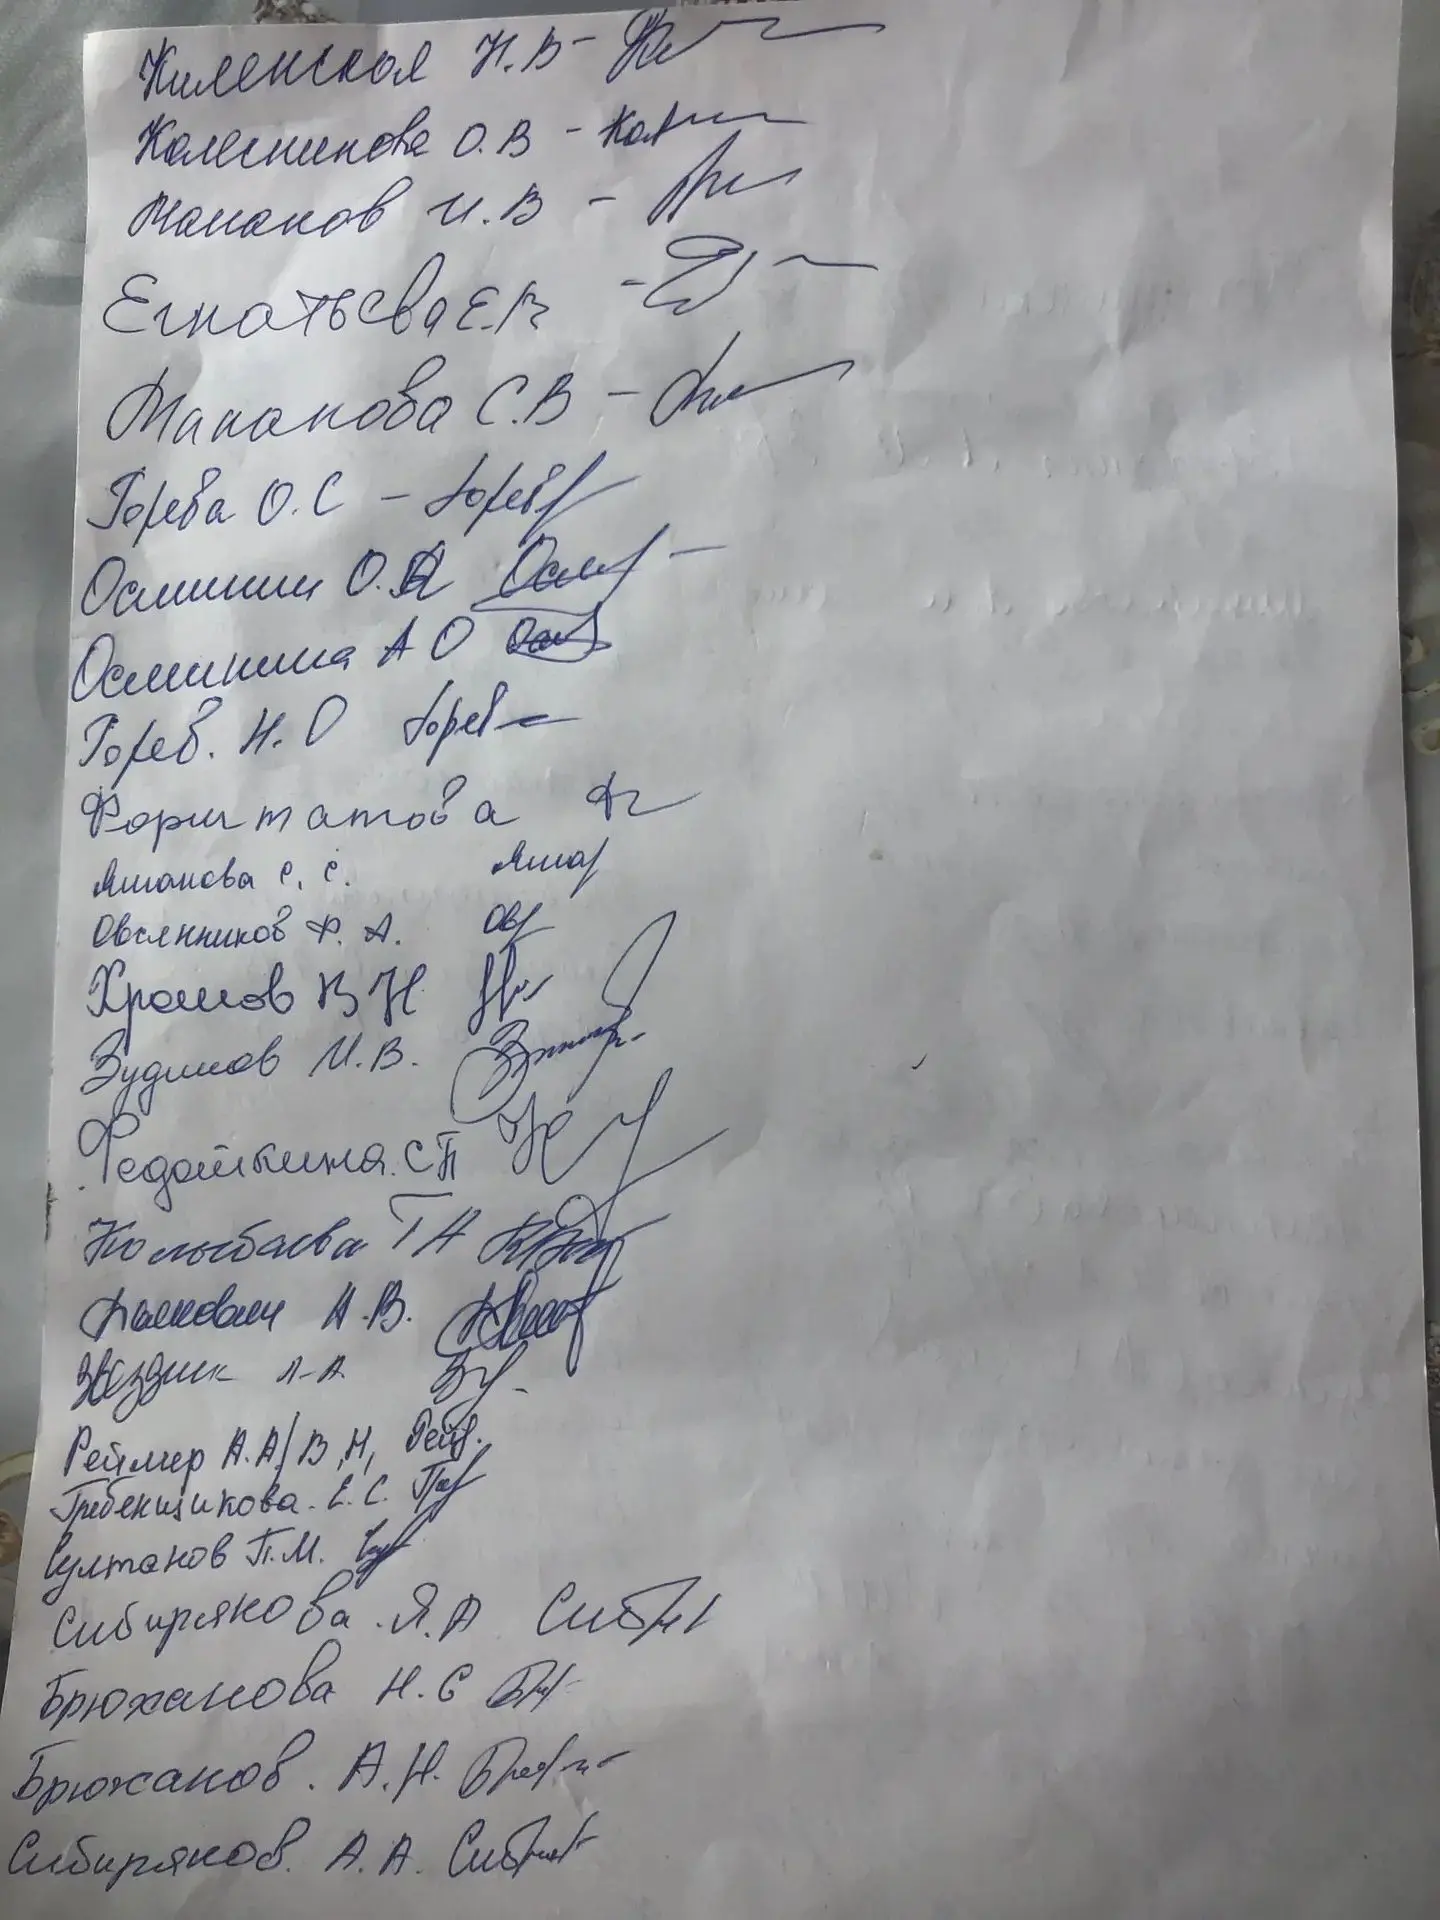 Жиленская Н.В -
Колесникова О.В - Кол
Манаков И.В -
Егнатьева Е.В -
Манакова С.В -
Горева О.С - Горев
Осминин О.А Осм
Осминина А О Осм
Горев. Н.О Горев
Фориштатова
Яшанова С. С. Яша
Овсянников Ф. А. Овс
Храмов В Н
Зудилов И.В.
Федошкина. С П
Колыбаева Т А
Н.В.
Звездин Л-А
Реймер А.А/В,Н, Рейм.
Гребенщикова. Е. С.
Султанов П.М.
Сибирякова. Я.А Сиб
Брюханова Н.С
Брюханов. А.Н.
Сибиряков. А.А. Сиб